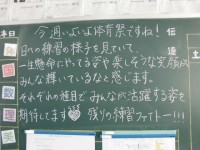 本日
伝
今週いよいよ体育祭ですね!
日々の練習の様子を見ていて、
一生懸命にやってる姿や楽しそうな笑顔が
みんな輝いているなと感じます。
それぞれの種目でみんなが活躍する姿を
期待してます
残りの練習ファイトー!!!
土